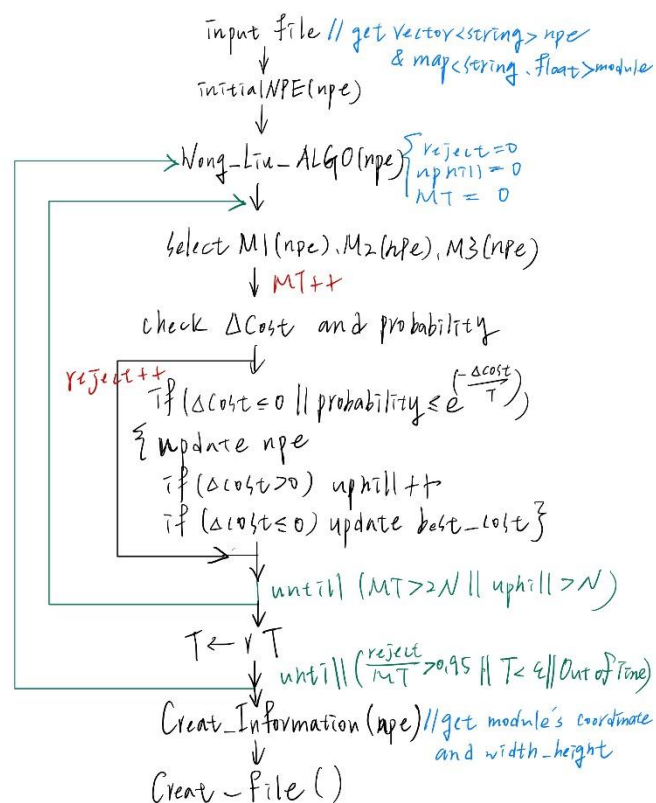 input file // get vector<string> npe
& map<string, float> module
initialNPE(npe)
Wong_Liu_ALGO(npe) { reject=0
uphill=0
MT = 0
select M1(npe), M2(npe), M3(npe)
MT++
check ΔCost and probability
reject++
if (ΔCost ≤ 0 || probability ≤ e^(-ΔCost/T))
{ update npe
if (ΔCost>0) uphill++
if (ΔCost≤0) update best_cost }
untill (MT>2N || uphill>N)
T ← r T
untill (reject/MT >0.95 || T< ε || Out of Time)
Creat_Information(npe) // get module's coordinate
and width_height
Creat_file()